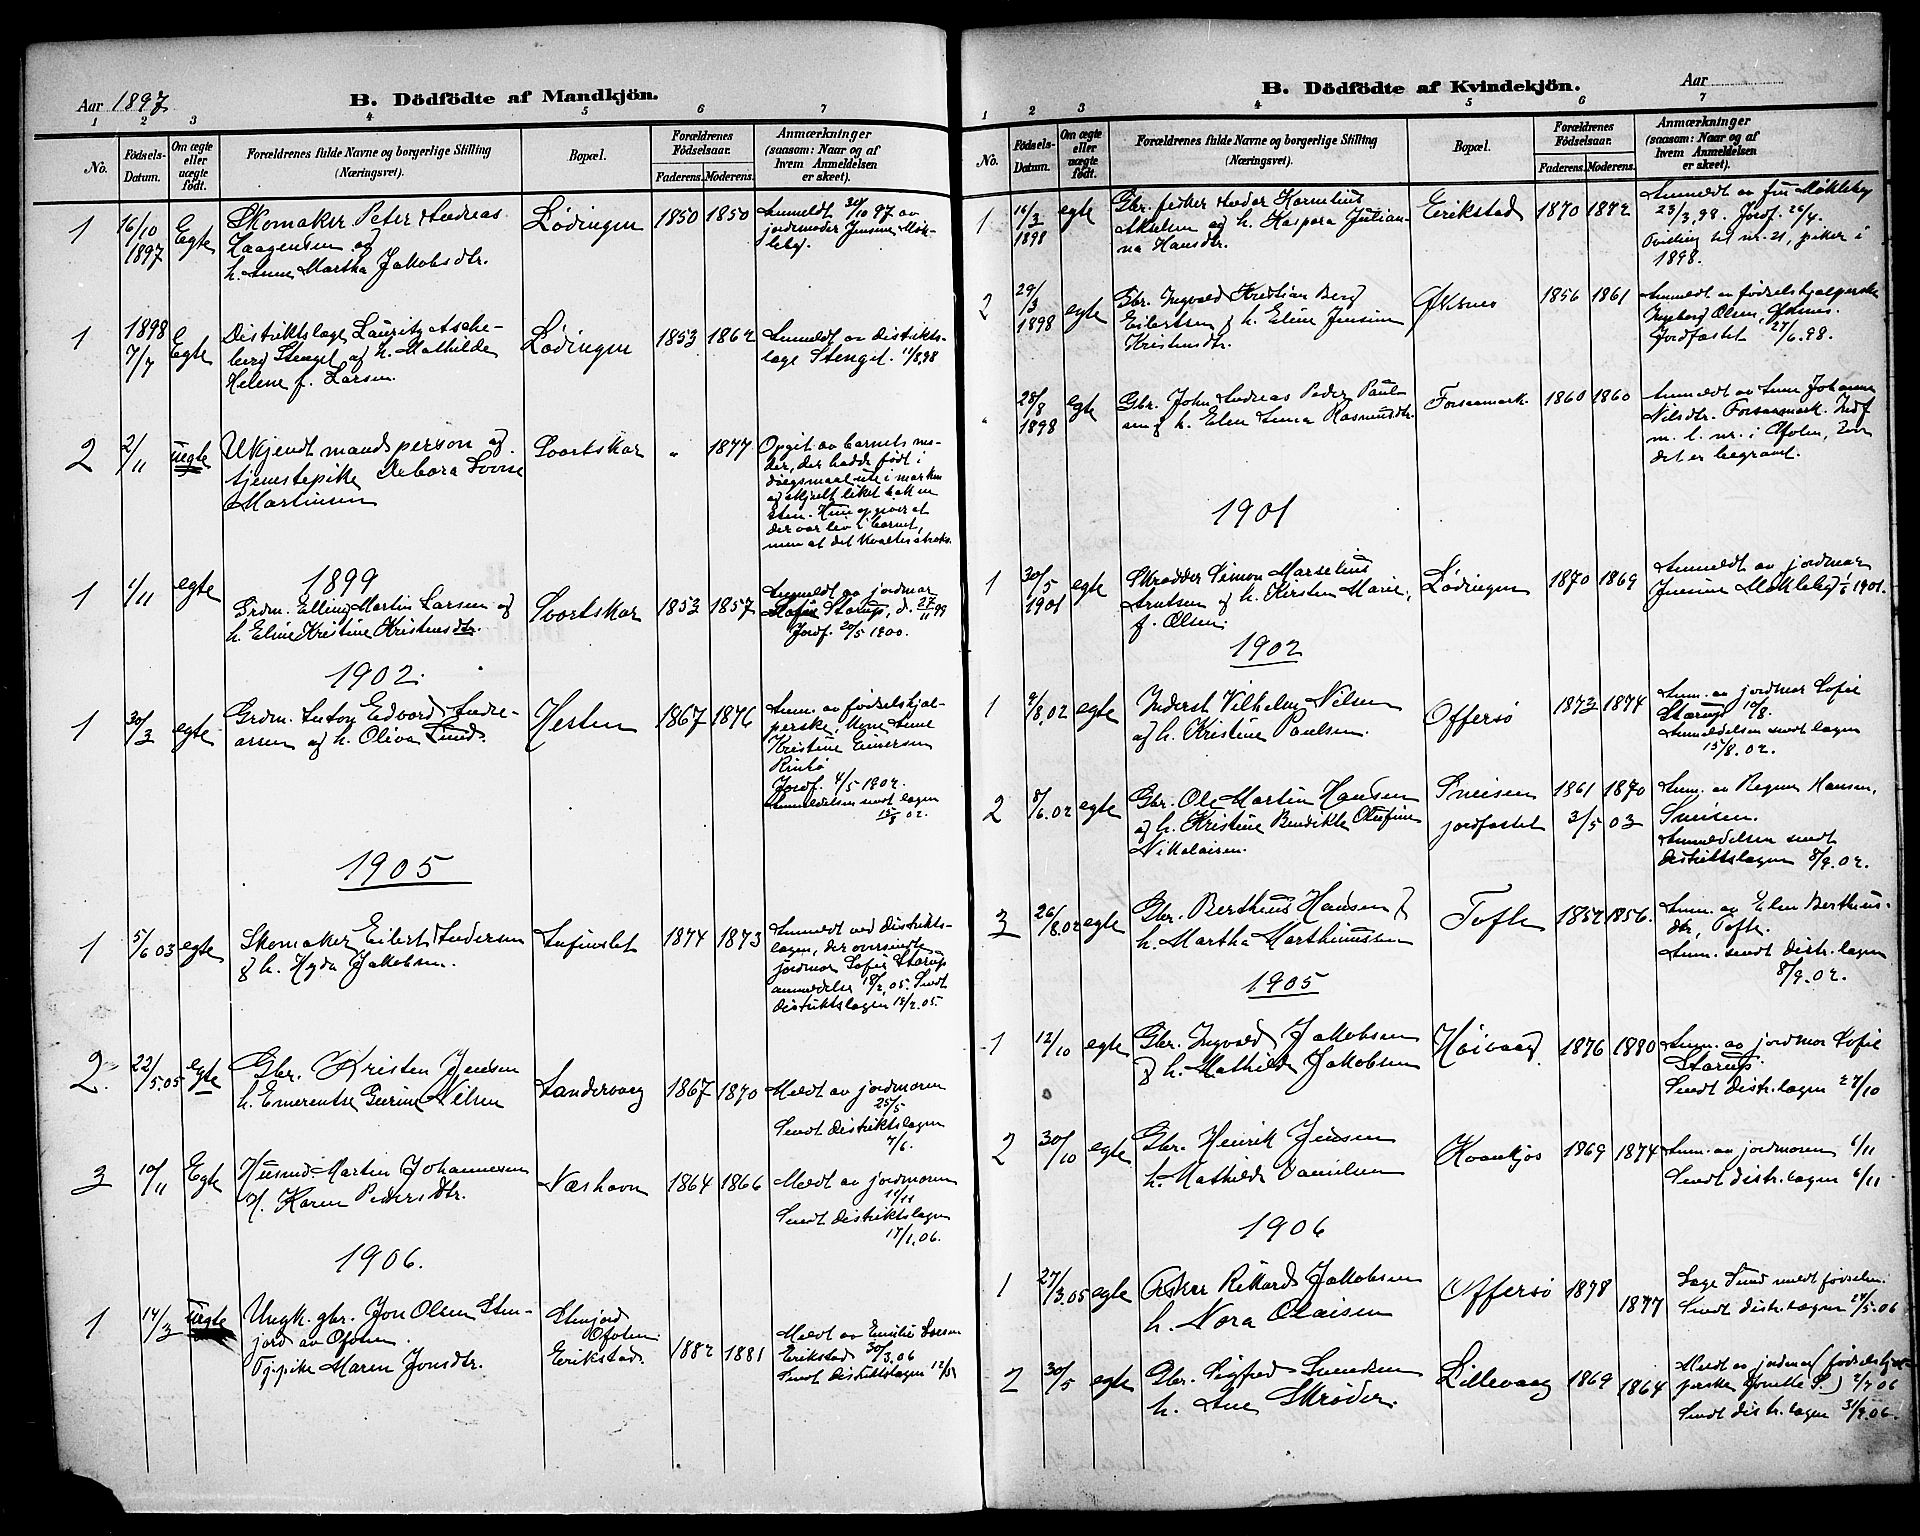 Aar 1897
B. Dödfödte af Mandkjön.
1 2 3 4 5 6 7
No.
Födsels-Datum.
Om ægte eller uægte födt.
Forældrenes fulde Navne og borgerlige Stilling
(Næringsvei).
Bopæl.
Forældrenes Födselsaar.
Faderens. Moderens.
Anmærkninger
(saasom: Naar og af
hvem Anmeldelsen
er skeet).
1 16/10 1897 Egte
Skomaker Peter Andreas
Haagensen og
h. Anne Martha Jakobsdtr.
Lødingen 1850 1850
Anmeldt 30/10 97 av
jordmoder Jensine Møk-
leby.
1 1898 7/7 Egte
Distriktslæge Lauritz Asche-
berg Stengel af h. Mathilde
Helene f. Larsen.
Lødingen 1853 1862
Anmeldt av distrikts-
læge Stengel. 11/8 98
2 2/11 uegte
Ukjendt mandsperson og
tjenestepike Debora Lovise
Martinsen
Svartskar " 1877
Opgit av barnets mo-
der, der hadde født i
dølgsmaal ute i marken
og skjult liket bak en
sten. Hun opgiver at
der var liv i barnet,
men at det kvaltes straks.
1899
1 1/11 egte
Grdm. Elling Martin Larsen og
h. Eline Kristine Kristensdtr.
Svartskar 1853 1857
Anmeldt av jordmor
Sofie Starup, d. 27/11 99
Jordf. 20/5 1900.
1902.
1 30/3 egte
Grdm. Anton Edvard Andre-
assen og h. Oliva Lund.
Hesten 1867 1876
Anm. av fødselshjæl-
perske, Anne
Kristine Einersen
Rinbø
Jordf. 4/5 1902.
Anmeldelsen sendt lægen
15/8 02.
1905
1 5/6 03 egte
Skomaker Eilert Andersen
& h. Hyda Jakobsen.
1874 1873
Anmeldt ved distrikts-
lægen, der oversendte
jordmor Sofie Starups
anmeldelse 18/2, 05. Sendt
distriktslægen 18/2. 05
2. 22/5.05 egte
Gbr. Kristen Jensen
h. Emerentse Gurine Nilsen
Sandervaag 1867 1870
Meldt av jordmoren
25/5
Sendt distriktslægen
7/6.
3 10/11 Egte
Husmd. Martin Johannessen
H. Karen Pedersdtr.
Næshavn 1864 1866
Meldt av jordmoren
14/11
Sendt distriktslægen
17/1. 06.
1906.
1 14/3 uegte
Ungk. gbr. Jon Olsen Sten-
jord av Ofoten.
Tj.pike Maren Jonsdtr.
Stenjord
Ofoten
Erikstad. 1882 1881
Meldt av Emilie Larsen
Erikstad 30/3.06
Sendt distriktslægen 12/5
B. Dödfödte af Kvindekjön.
Aar
1 2 3 4 5 6 7
No.
Födsels-Datum.
Om ægte eller uægte födt.
Forældrenes fulde Navne og borgerlige Stilling
(Næringsvei).
Bopæl.
Forældrenes Födselsaar.
Faderens. Moderens.
Anmærkninger
(saasom: Naar og af
hvem Anmeldelsen
er skeet).
1 16/3 1898 egte
Gbr. fisker Peder Kornelius
Akselsen og h. Kaspara Julian-
na Hansdtr.
Erikstad 1870 1872
Anmeldt av fru Møkleby
23/3.98. Jordf. 26/4.
Tvilling til nr. 21, piker i
1898.
2 29/3 1898 egte
Gbr. Ingvald Kristian Berg
Eilertsen & h. Eline Jensine
Kristensdtr.
Øksnes 1856 1861
Anmeldt av fødselshjælperske
Ingeborg Olsen, Øksnes.
Jordfæstet 27/6.98.
" 28/8 1898 egte
Gbr. John Andreas Peder Paul-
sen & h. Elen Anna Rasmusdtr.
Forsaamark 1860 1860
Anmeldt av Anne Johanne
Nilsdtr. Forsaamark. Indf.
m. l. nr. i Ofoten, hvor
det er begravet.
1901
1 30/5 1901 egte
Skrædder Simon Marselius
Arntsen & h. Kirsten Marie,
f. Olsen.
Lødingen 1870 1869
Anmeldt av jordmor
Jensine Møkleby 1/6 1901.
1902
1 9/8, 02 egte
Inderst Vilhelm Nilsen
og h. Kristine Paulsen.
Offersø 1873 1874
Anm. av jordmor Sofie
Starup 10/8.
Anmeldelsen sendt lægen
15/8. 02.
2 8/6.02 egte
Gbr. Ole Martin Hansen
og h. Kristine Bendikte Olufine
Nikolaisen.
Sneisen 1861 1870
jordfæstet 3/5 03
Anm. av Regine Hansen,
Sneisen.
Anmeldelsen sendt
distriktslægen 8/9.02.
3 26/8.02 egte
Gbr. Berthius Hansen &
h. Martha Marthinussen
Tofte 1852 1856.
Anm. av Elen Berthius-
dtr, Tofte.
Anm. sendt distr. lægen
8/9.02.
1905
1 12/10 egte
Gbr. Ingvald Jakobsen
& h. Mathilde Jakobsen
Høivaag 1876 1880
Anm. av jordmor Sofie
Starup.
Sendt distr. lægen 27/10
2 30/10 egte
Gbr. Henrik Jensen
h. Mathilde Danielsen
Kvankjos 1869 1874
Anm. av jordmoren 6/11
Sendt distr. lægen 6/11
1906
1 27/3.05 egte
Fisker Rikard Jakobsen
h. Nora Olaisen
Offersø 1878 1877
Læge Sund meldt fødselen.
Sendt distr. lægen 27/5.06
2 30/5 egte
Gbr. Sigfred Svendsen
h. Ane Skrøder.
Lillevaag 1869 1864
Meldt av jordmor (fødselshjæl-
perske Jonette S.) 2/7 06
Sendt distr. lægen 31/7.06.